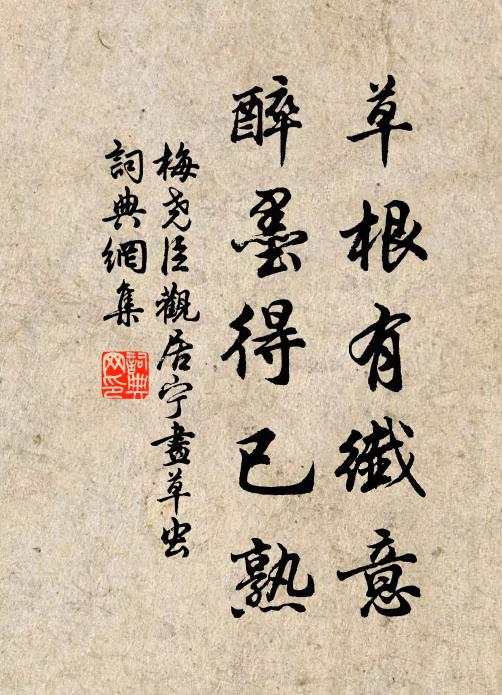 草根有纖意
醉墨得已熟
梅尧臣觀居宁畫草虫
詞典網集
詞典网印